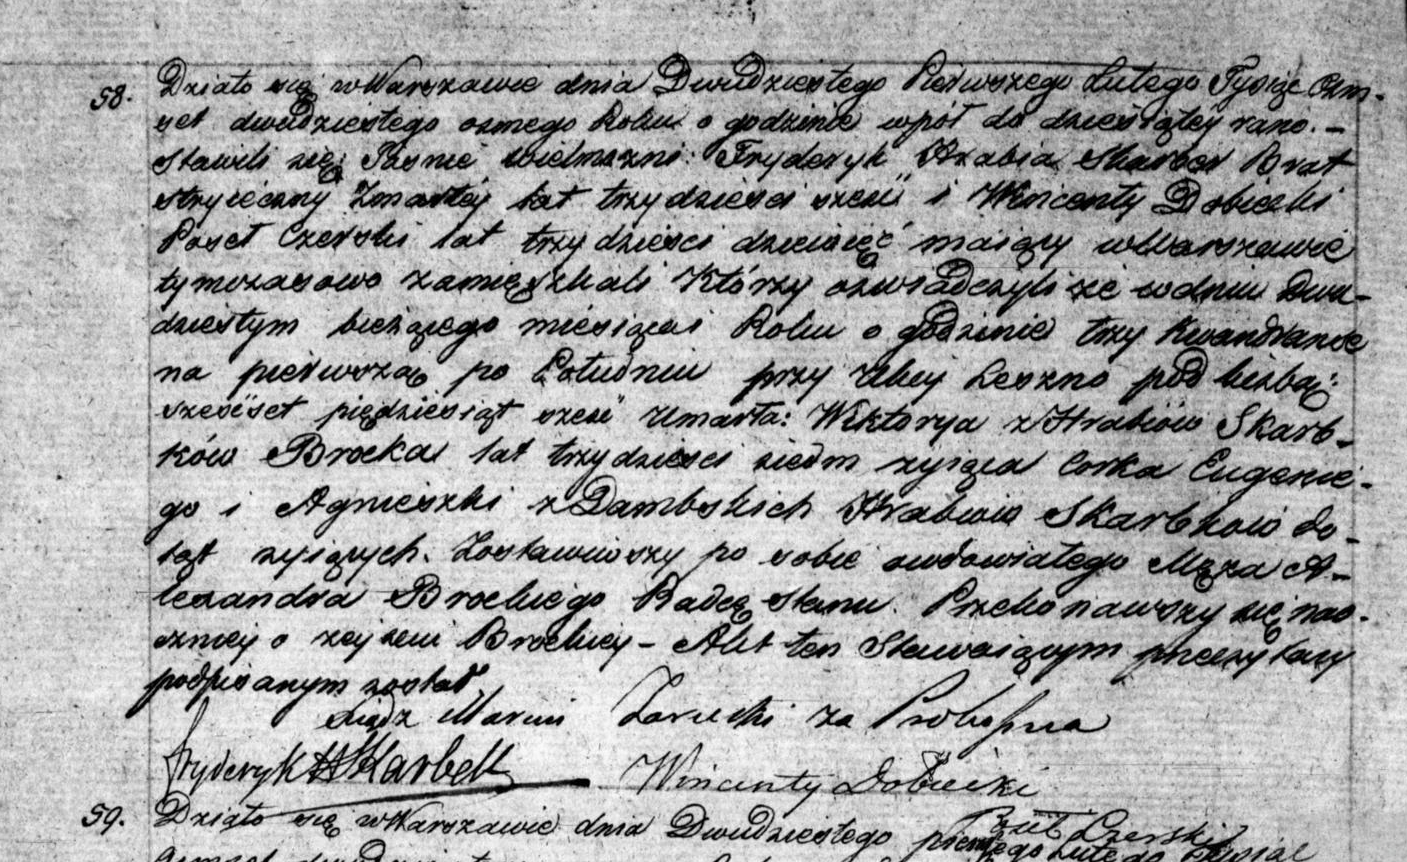 58. Działo się w Warszawie dnia Dwudziestego Pierwszego Lutego Tysiąc Ośm-
set dwudziestego osmego Roku o godzinie wpół do dziesiątey rano. —
Stawili się; Jaśnie Wielmożni: Fryderyk Hrabia Skarbek Brat
stryieczny Zmarłéy lat trzydzieści sześć i Wincenty Dobiecki
Poseł Czerski lat trzydzieści dziewięć maiący w Warszawie
tymczasowo zamięszkali Którzy oświadczyli że w dniu Dwu-
dziestym bieżącego miesiąca i Roku o godzinie trzy kwandranse
na pierwszą po Południu przy Ulicy Leszno pod liczbą:
sześćset piędziesiąt sześć Umarła: Wiktorya z Hrabiów Skarb-
ków Brocka lat trzydzieści siedm żyiąca Corka Eugenie-
go i Agnieszki z Dambskich Hrabiów Skarbków do-
tąt żyiących. Zostawiwszy po sobie owdowiałego Męża A-
lexandra Brockiego Radcę Stanu. Przekonawszy się nao-
cznie o zejściu Brockiey — Akt ten Stawaiącym przeczytany
podpisanym został.
Xiądz Marcin Zarucki za Proboszcza
Fryderyk H Skarbek Wincenty Dobiecki
Poseł Czerski
59. Działo się w Warszawie dnia Dwudziestego pierwszego Lutego Tysiąc